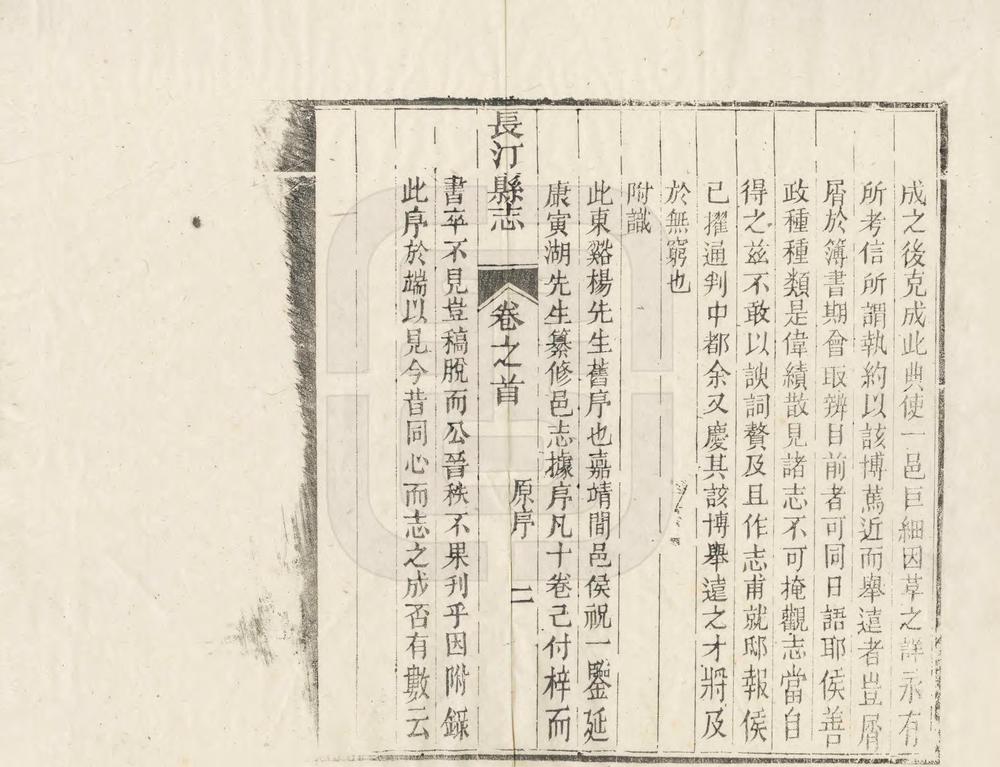 成之後克成此典使一邑巨細因革之詳永有
所考信所謂執約以該博萬近而舉遠者豈屑
屑於簿書期會取辨目前者可同日語耶侯善
政種種類是偉績散見諸志不可掩觀志當自
得之茲不敢以諛詞贅及且作志甫就邸報侯
已擢通判中都余又慶其該博舉遠之才將及
於無窮也
附識
此東谿楊先生舊序也嘉靖間邑侯祝一鑒延
康寅湖先生纂修邑志據序凡十卷己付梓而
長汀縣志 卷之首 原序 二
書卒不見豈稿脫而公晉秩不果刊乎因附錄
此序於端以見今昔同心而志之成否有數云